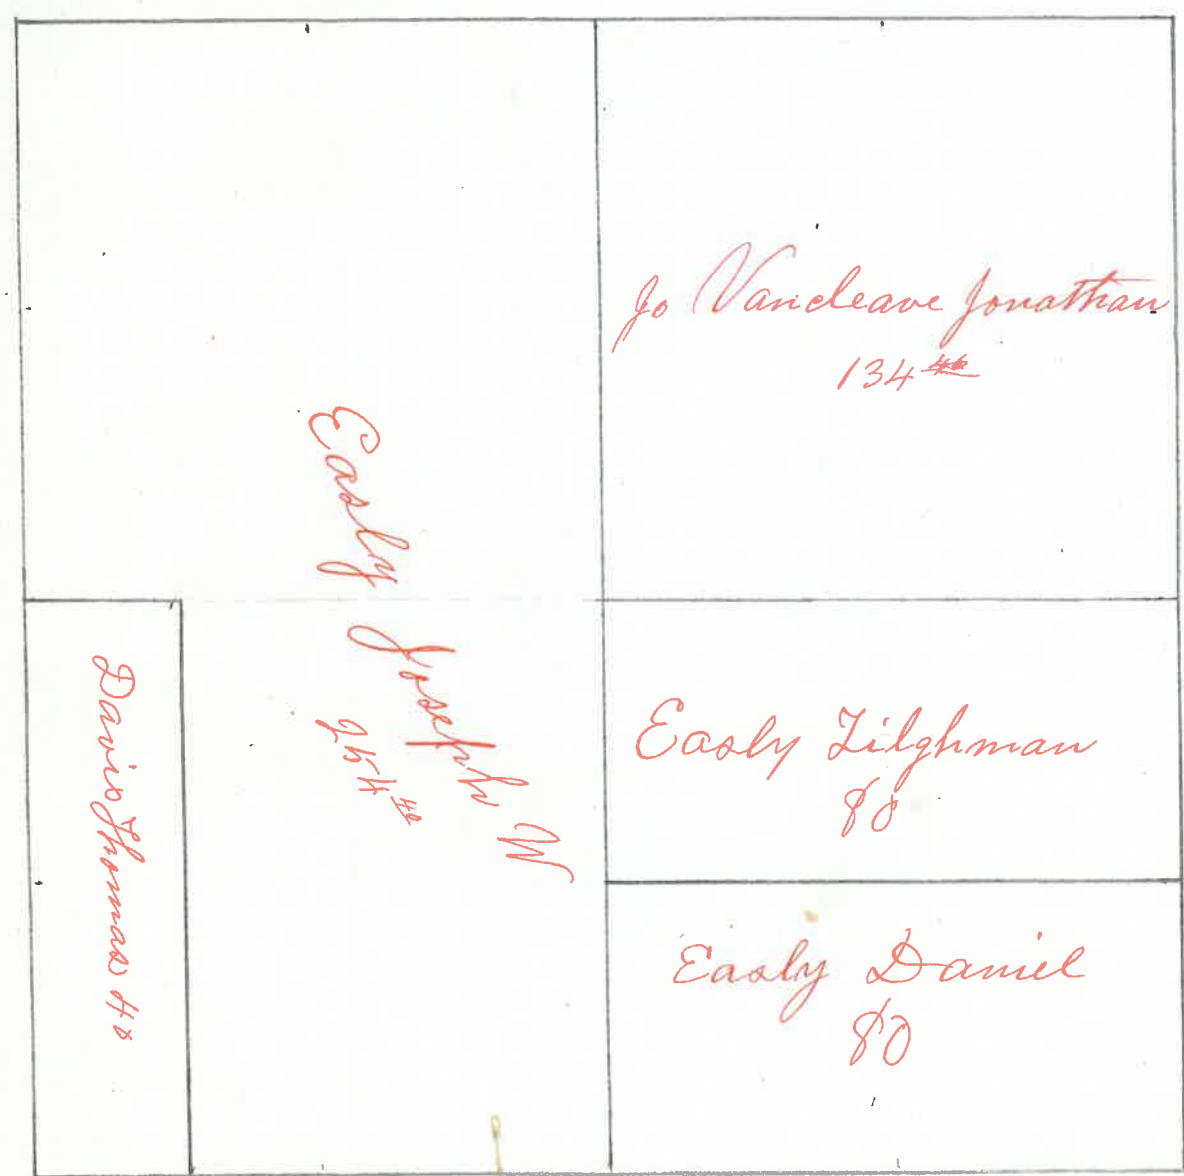 Jo Vancleave Jonathan
134 46
Easly Joseph W
254 40
Easly Tilghman
80
Easly Daniel
80
Davis Thomas 40